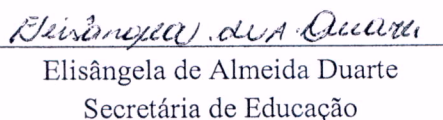 Elisângela de A. Duarte
Elisângela de Almeida Duarte
Secretária de Educação